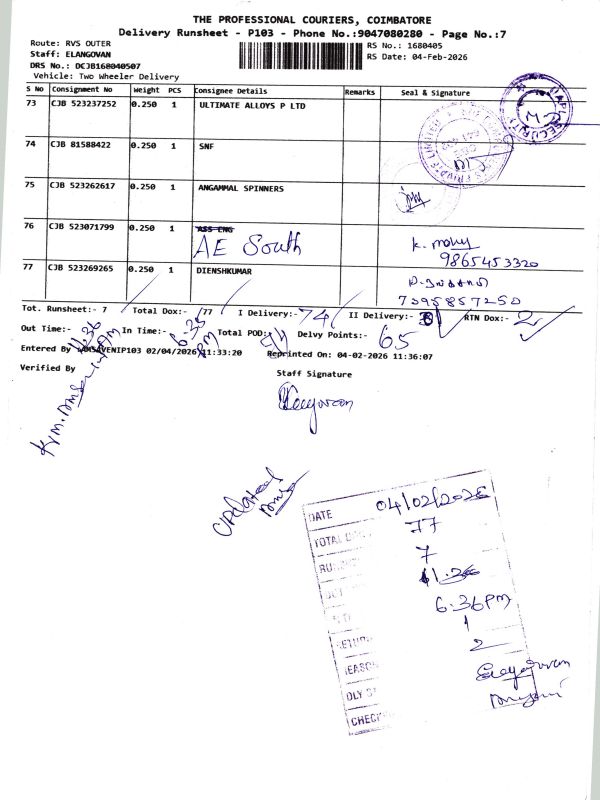 THE PROFESSIONAL COURIERS, COIMBATORE
Delivery Runsheet - P103 - Phone No.:9047080280 - Page No.:7
Route: RVS OUTER
RS No.: 1680405
Staff: ELANGOVAN
RS Date: 04-Feb-2026
DRS No.: DCJB168040507
Vehicle: Two Wheeler Delivery
S No Consignment No Weight PCS Consignee Details Remarks Seal & Signature
73 CJB 523237252 0.250 1 ULTIMATE ALLOYS P LTD
SECURITY
74 CJB 81588422 0.250 1 SNF
75 CJB 523262617 0.250 1 ANGAMMAL SPINNERS
76 CJB 523071799 0.250 1 ASS ENG
AE South
K. mohy
9865453320
77 CJB 523269265 0.250 1 DIENSHKUMAR
7395857250
Tot. Runsheet:- 7 Total Dox:- 77 I Delivery:- 74 II Delivery:- RTN Dox:- 2
Out Time:- 11.36 AM In Time:- 6.35 PM Total POD:- Delvy Points:- 65
Entered By 02/04/2026 11:33:20 Reprinted On: 04-02-2026 11:36:07
Verified By
Staff Signature
Elangovan
Updated
DATE 04/02/2026
TOTAL 77
7
11.36
6.36PM
1
2
Elangovan